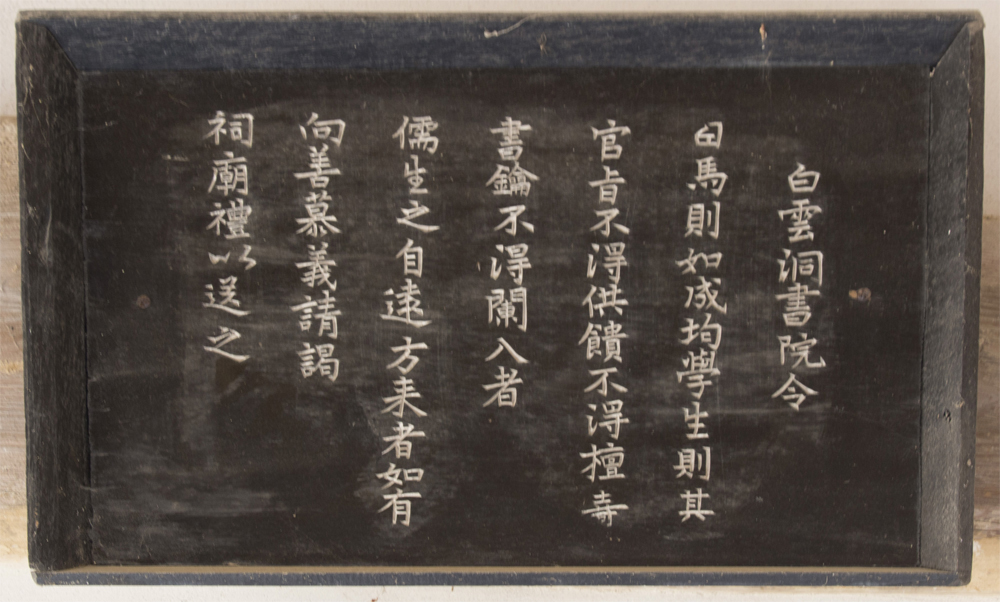 白雲洞書院令
曰馬則如成均學生則其
官旨不得供饋不得擅壽
書鑰不得闌入者
儒生之自遠方来者如有
向善慕義請謁
祠廟禮以送之